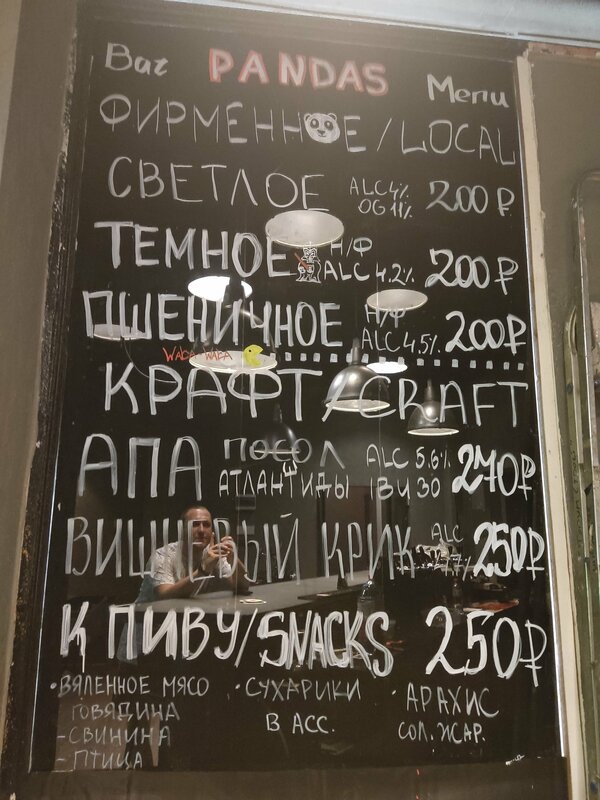 Bar PANDAS Menu
ФИРМЕННОЕ/LOCAL
СВЕТЛОЕ ALC 4% OG 11% 200₽
ТЕМНОЕ Н/Ф ALC 4.2% 200₽
ПШЕНИЧНОЕ Н/Ф ALC 4.5% 200₽
WACA WACA
КРАФТ/CRAFT
АПА ПОСОЛ АТЛАНТИДЫ ALC 5.6% IBU 30 270₽
ВИШНЕВЫЙ КРИК ALC 250₽
К ПИВУ/SNACKS 250₽
·ВЯЛЕННОЕ МЯСО ·СУХАРИКИ ·АРАХИС
ГОВЯДИНА В АСС. СОЛ. ЖАР.
-СВИНИНА
-ПТИЦА